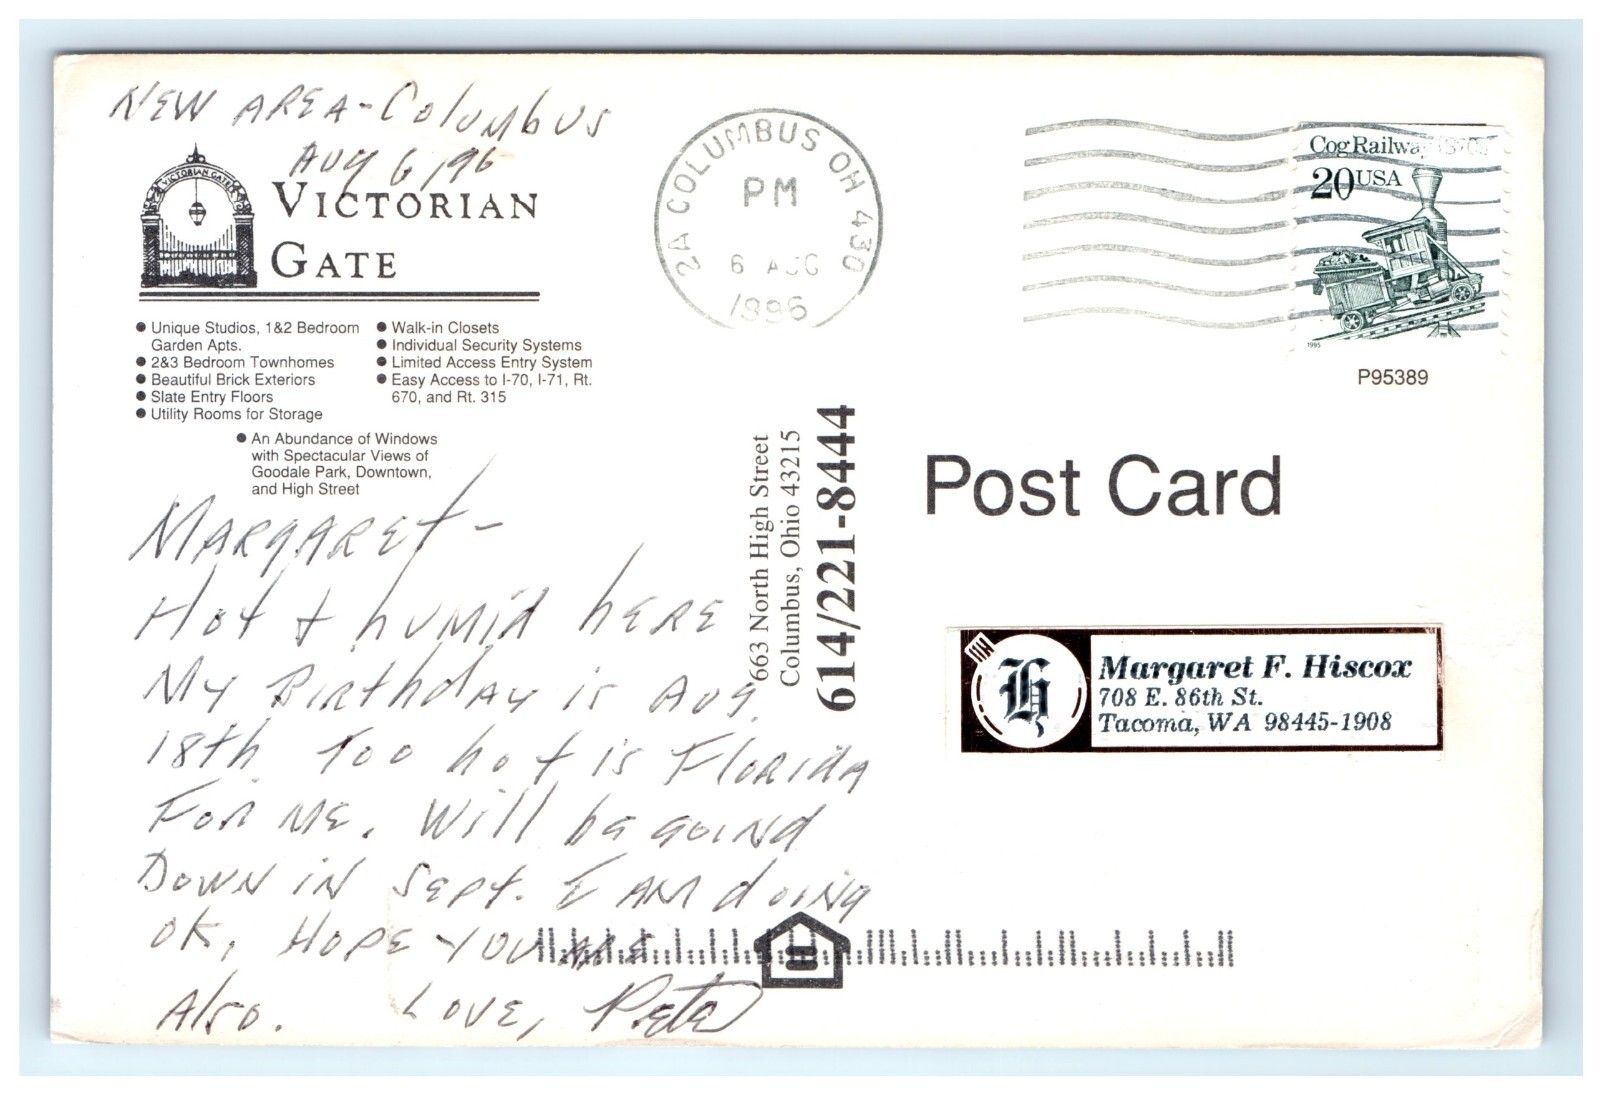 NEW AREA - Columbus
Aug 6, 96
VICTORIAN GATE
VICTORIAN
GATE
Unique Studios, 1&2 Bedroom
Garden Apts.
2&3 Bedroom Townhomes
Beautiful Brick Exteriors
Slate Entry Floors
Utility Rooms for Storage
Walk-in Closets
Individual Security Systems
Limited Access Entry System
Easy Access to I-70, I-71, Rt.
670, and Rt. 315
An Abundance of Windows
with Spectacular Views of
Goodale Park, Downtown,
and High Street
MARGARET -
Hot & humid here
My Birthday is Aug.
18th. Too hot is Florida
For me. Will be going
Down in Sept. I am doing
OK, Hope you are
Also. Love, Pete
663 North High Street
Columbus, Ohio 43215
614/221-8444
2A COLUMBUS OH 430
PM
6 AUG
1996
Cog Railway 1870s
20 USA
1995
P95389
Post Card
H
Margaret F. Hiscox
708 E. 86th St.
Tacoma, WA 98445-1908